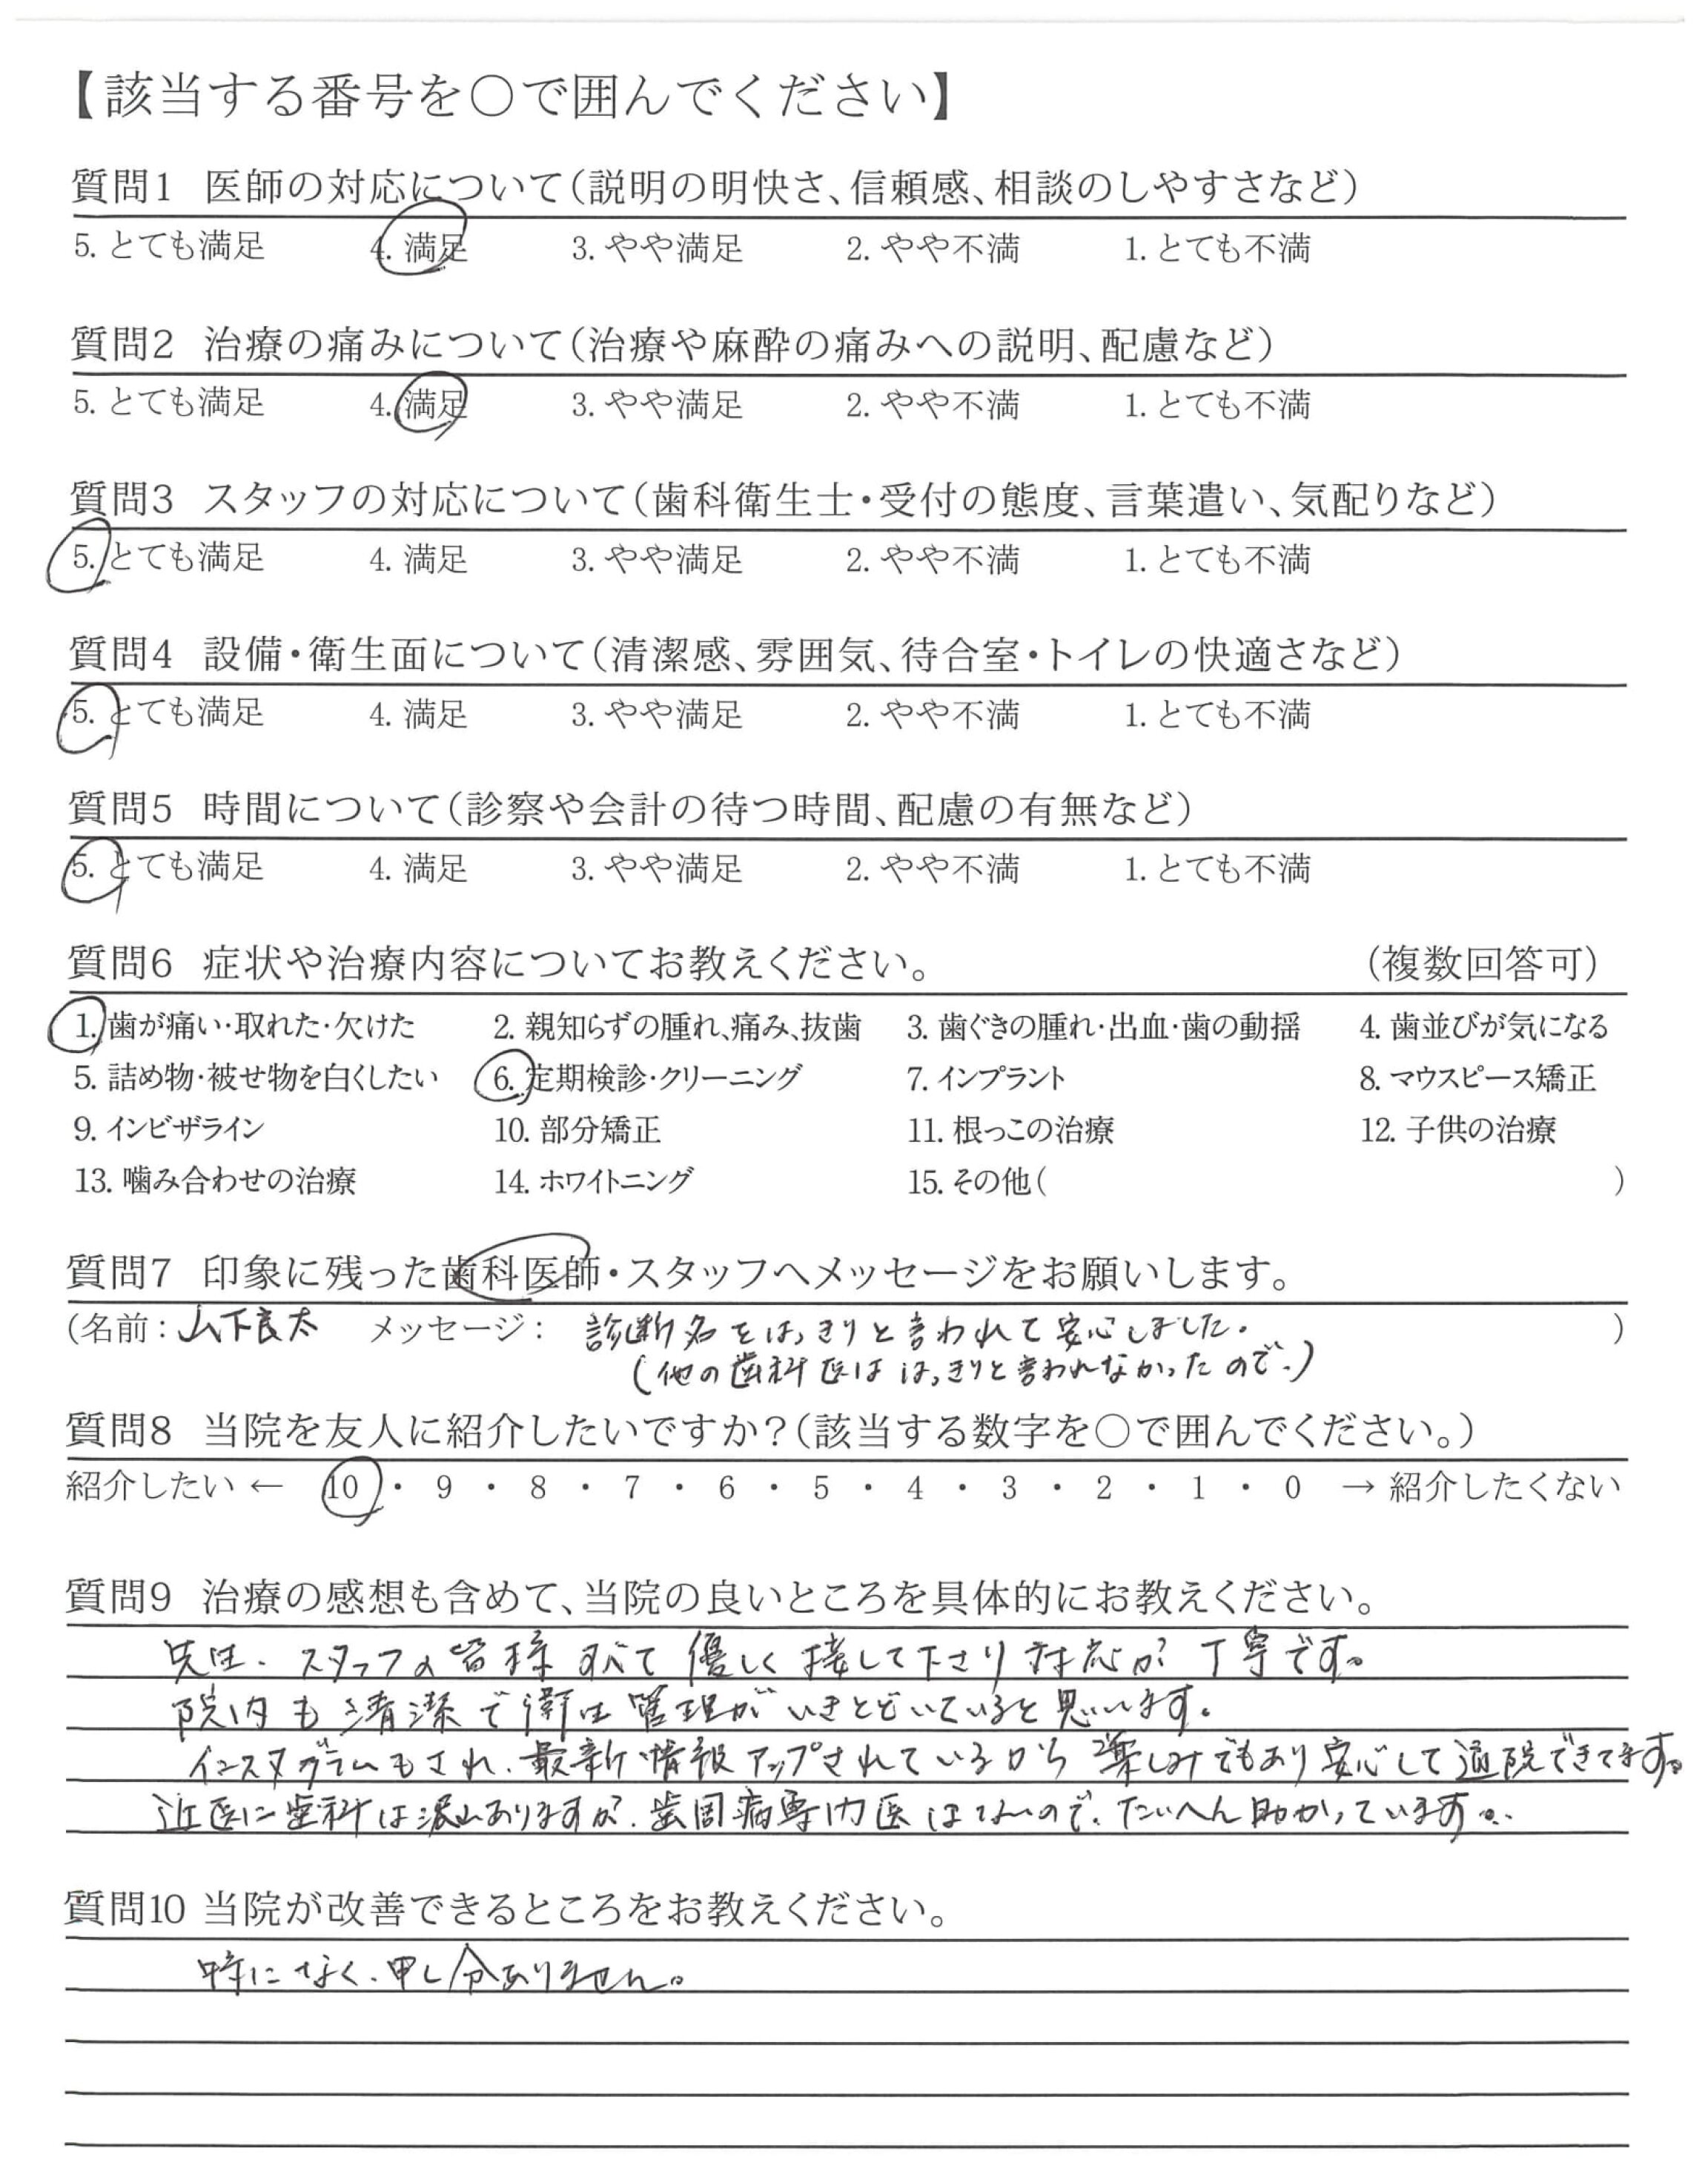 【該当する番号を〇で囲んでください】
質問1 医師の対応について(説明の明快さ、信頼感、相談のしやすさなど)
5. とても満足 4. 満足 3. やや満足 2. やや不満 1. とても不満
質問2 治療の痛みについて(治療や麻酔の痛みへの説明、配慮など)
5. とても満足 4. 満足 3. やや満足 2. やや不満 1. とても不満
質問3 スタッフの対応について(歯科衛生士・受付の態度、言葉遣い、気配りなど)
5. とても満足 4. 満足 3. やや満足 2. やや不満 1. とても不満
質問4 設備・衛生面について(清潔感、雰囲気、待合室・トイレの快適さなど)
5. とても満足 4. 満足 3. やや満足 2. やや不満 1. とても不満
質問5 時間について(診察や会計の待つ時間、配慮の有無など)
5. とても満足 4. 満足 3. やや満足 2. やや不満 1. とても不満
質問6 症状や治療内容についてお教えください。 (複数回答可)
1. 歯が痛い・取れた・欠けた 2. 親知らずの腫れ、痛み、抜歯 3. 歯ぐきの腫れ・出血・歯の動揺 4. 歯並びが気になる
5. 詰め物・被せ物を白くしたい 6. 定期検診・クリーニング 7. インプラント 8. マウスピース矯正
9. インビザライン 10. 部分矯正 11. 根っこの治療 12. 子供の治療
13. 噛み合わせの治療 14. ホワイトニング 15. その他( )
質問7 印象に残った歯科医師・スタッフへメッセージをお願いします。
(名前: 山下良太 メッセージ: 診断名をはっきりと言われて安心しました。 )
(他の歯科医は はっきりと言われなかったので。)
質問8 当院を友人に紹介したいですか?(該当する数字を〇で囲んでください。)
紹介したい ← 10 ・ 9 ・ 8 ・ 7 ・ 6 ・ 5 ・ 4 ・ 3 ・ 2 ・ 1 ・ 0 → 紹介したくない
質問9 治療の感想も含めて、当院の良いところを具体的にお教えください。
先生、スタッフの皆様 すべて 優しく 接して下さり 対応が 丁寧です。
院内も清潔で衛生管理がいきとどいていると思います。
インスタグラムもされ、最新情報アップされているから 楽しみでもあり安心して通院できてます。
近医に歯科は沢山ありますが、歯周病専門医はないので、たいへん助かっています。
質問10 当院が改善できるところをお教えください。
特になく、申し分ありません。